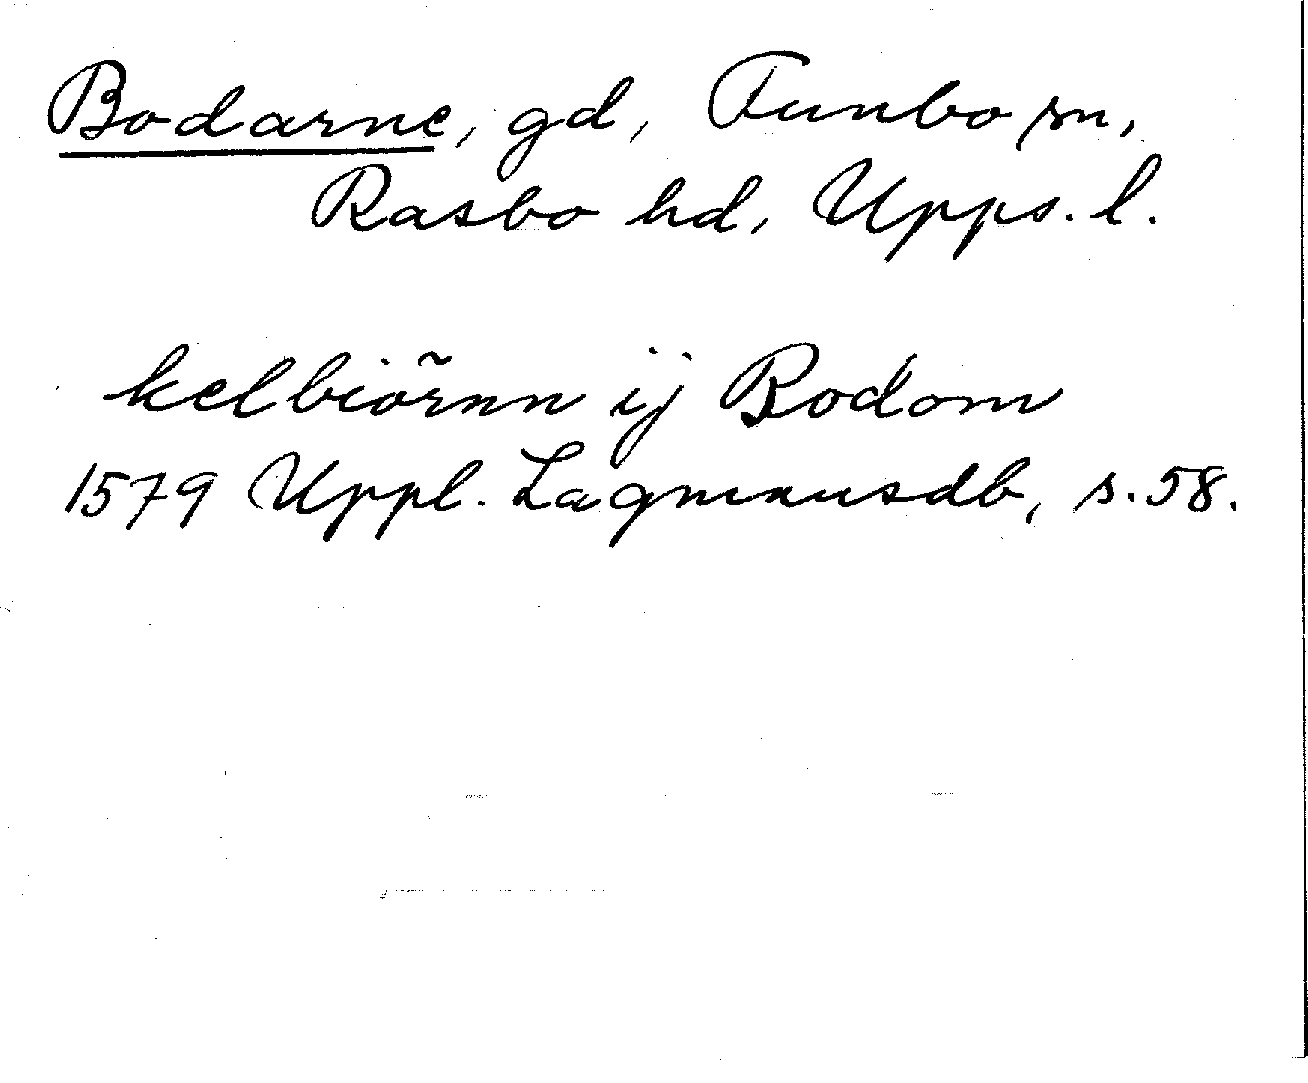 Bodarne, gd, Funbo sn,
Rasbo hd, Upps. l.
kelbiörnn ij Bodom
1579 Uppl. Lagmansdb, s. 58.